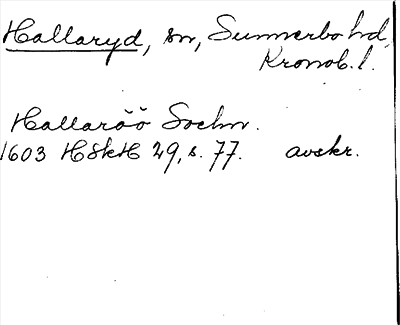 Hallaryd, sn, Sunnerbo hd,
Kronob. l.
Hallaröö Sochn.
1603 HSkH 29, s. 77. avskr.